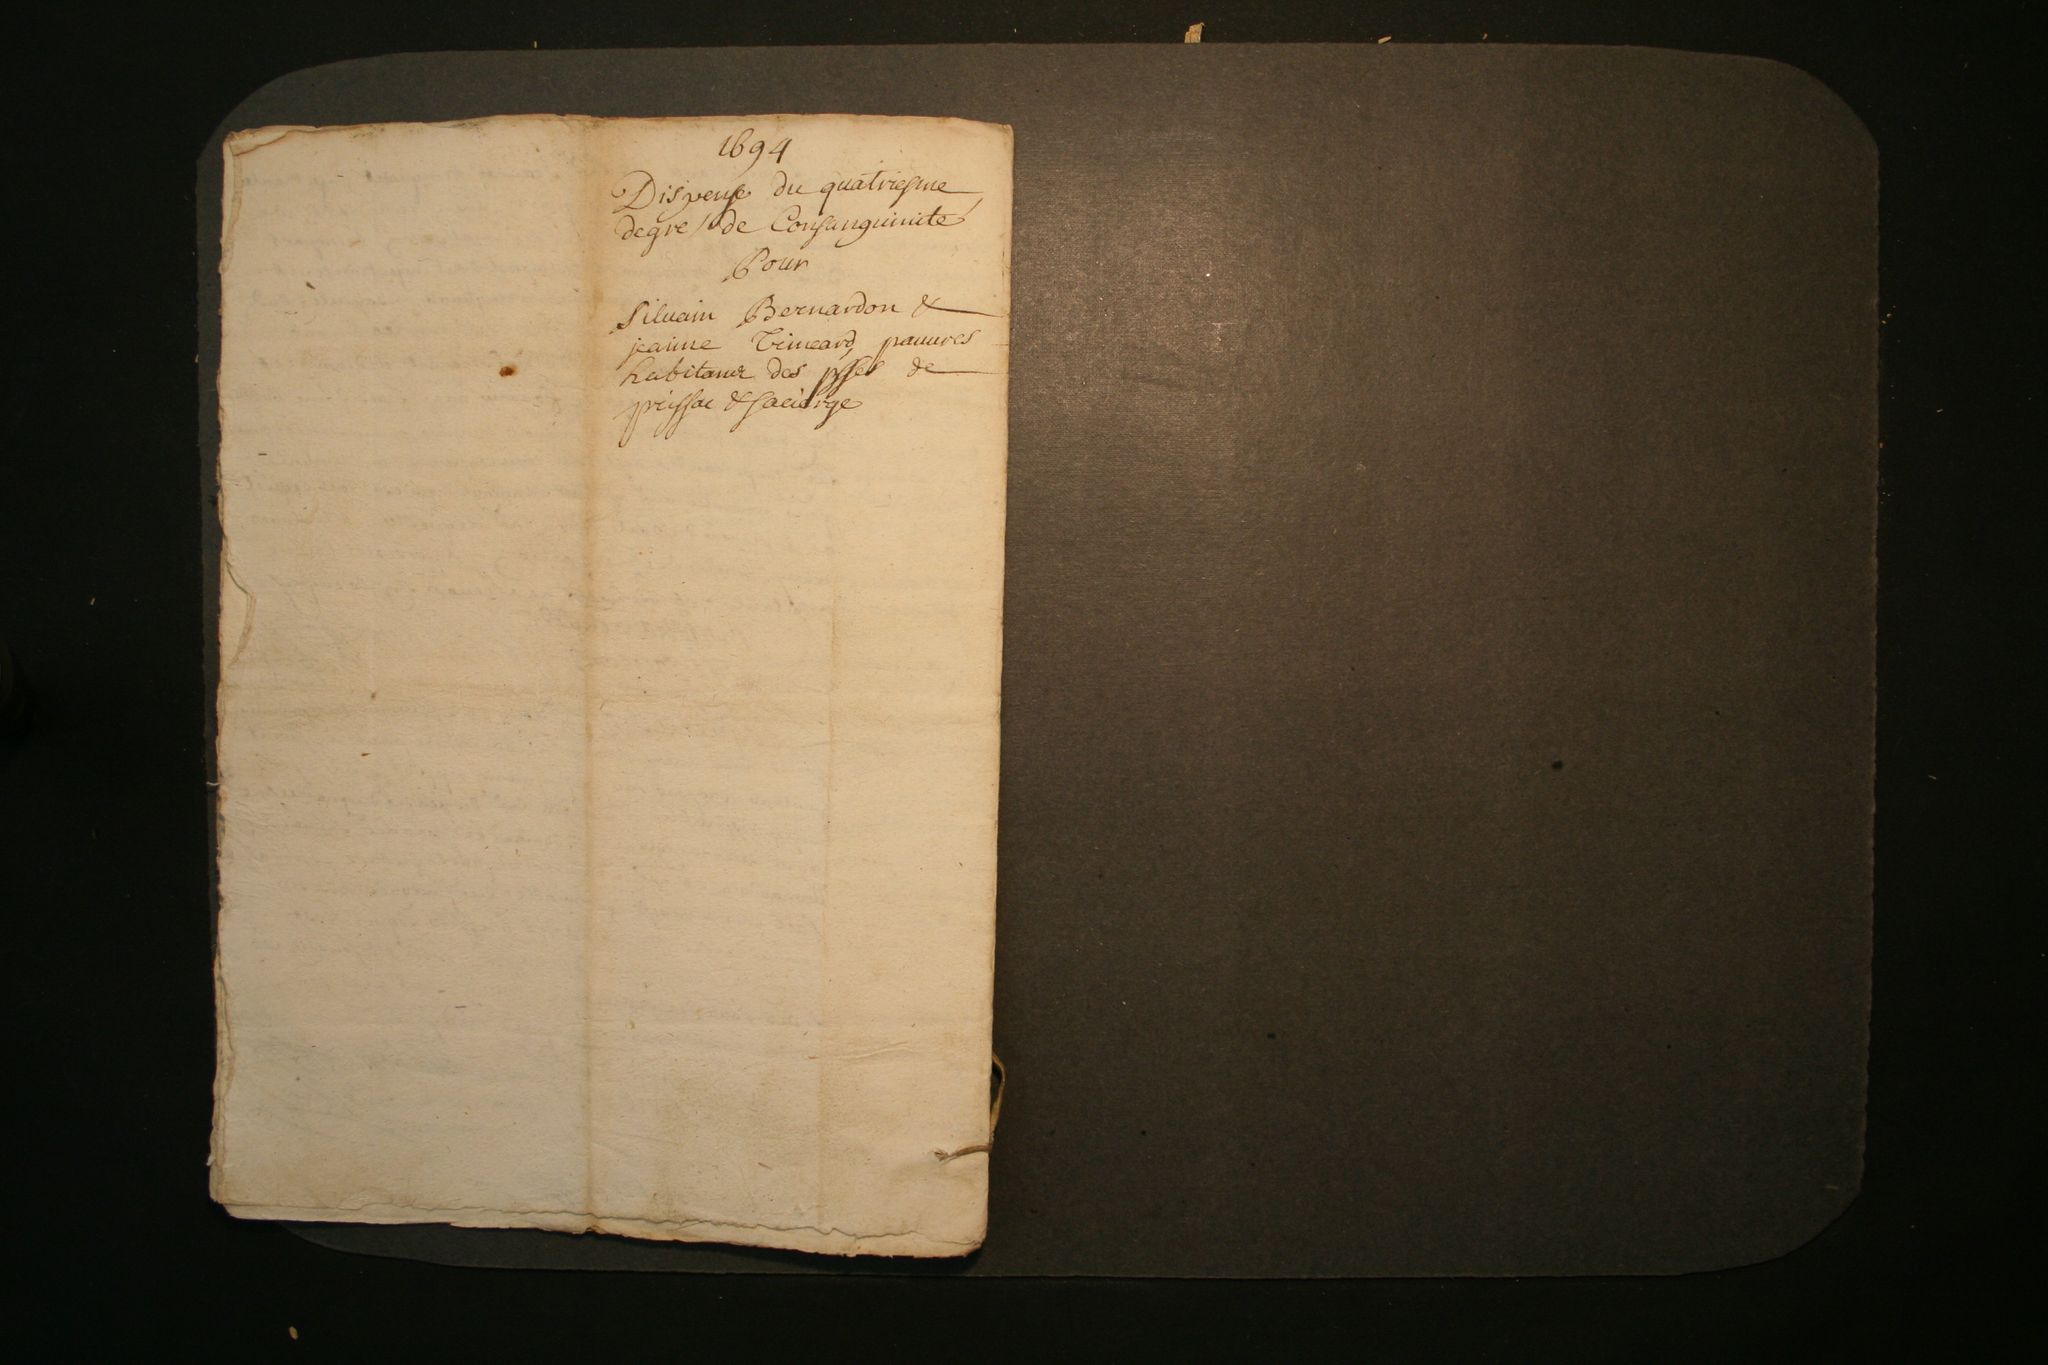 1694
Dispense du quatriesme
degré de Consanguinité
Pour
Siluain Bernardon &
jeanne Timeard, pauures
habitans des psses de
prissac & saciorge